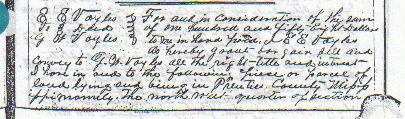 E E Vayles For and in consideration of the sum
To Deed of one hundred and fifty eight dollars
G W Vayles to me in hand paid I E E Vayles
do hereby grant bargain sell and
convey to G. W. Vayles all the right title and interest
I own in and to the following piece or parcel of
land lying and being in Prentiss County Miss
the north west quarter of section